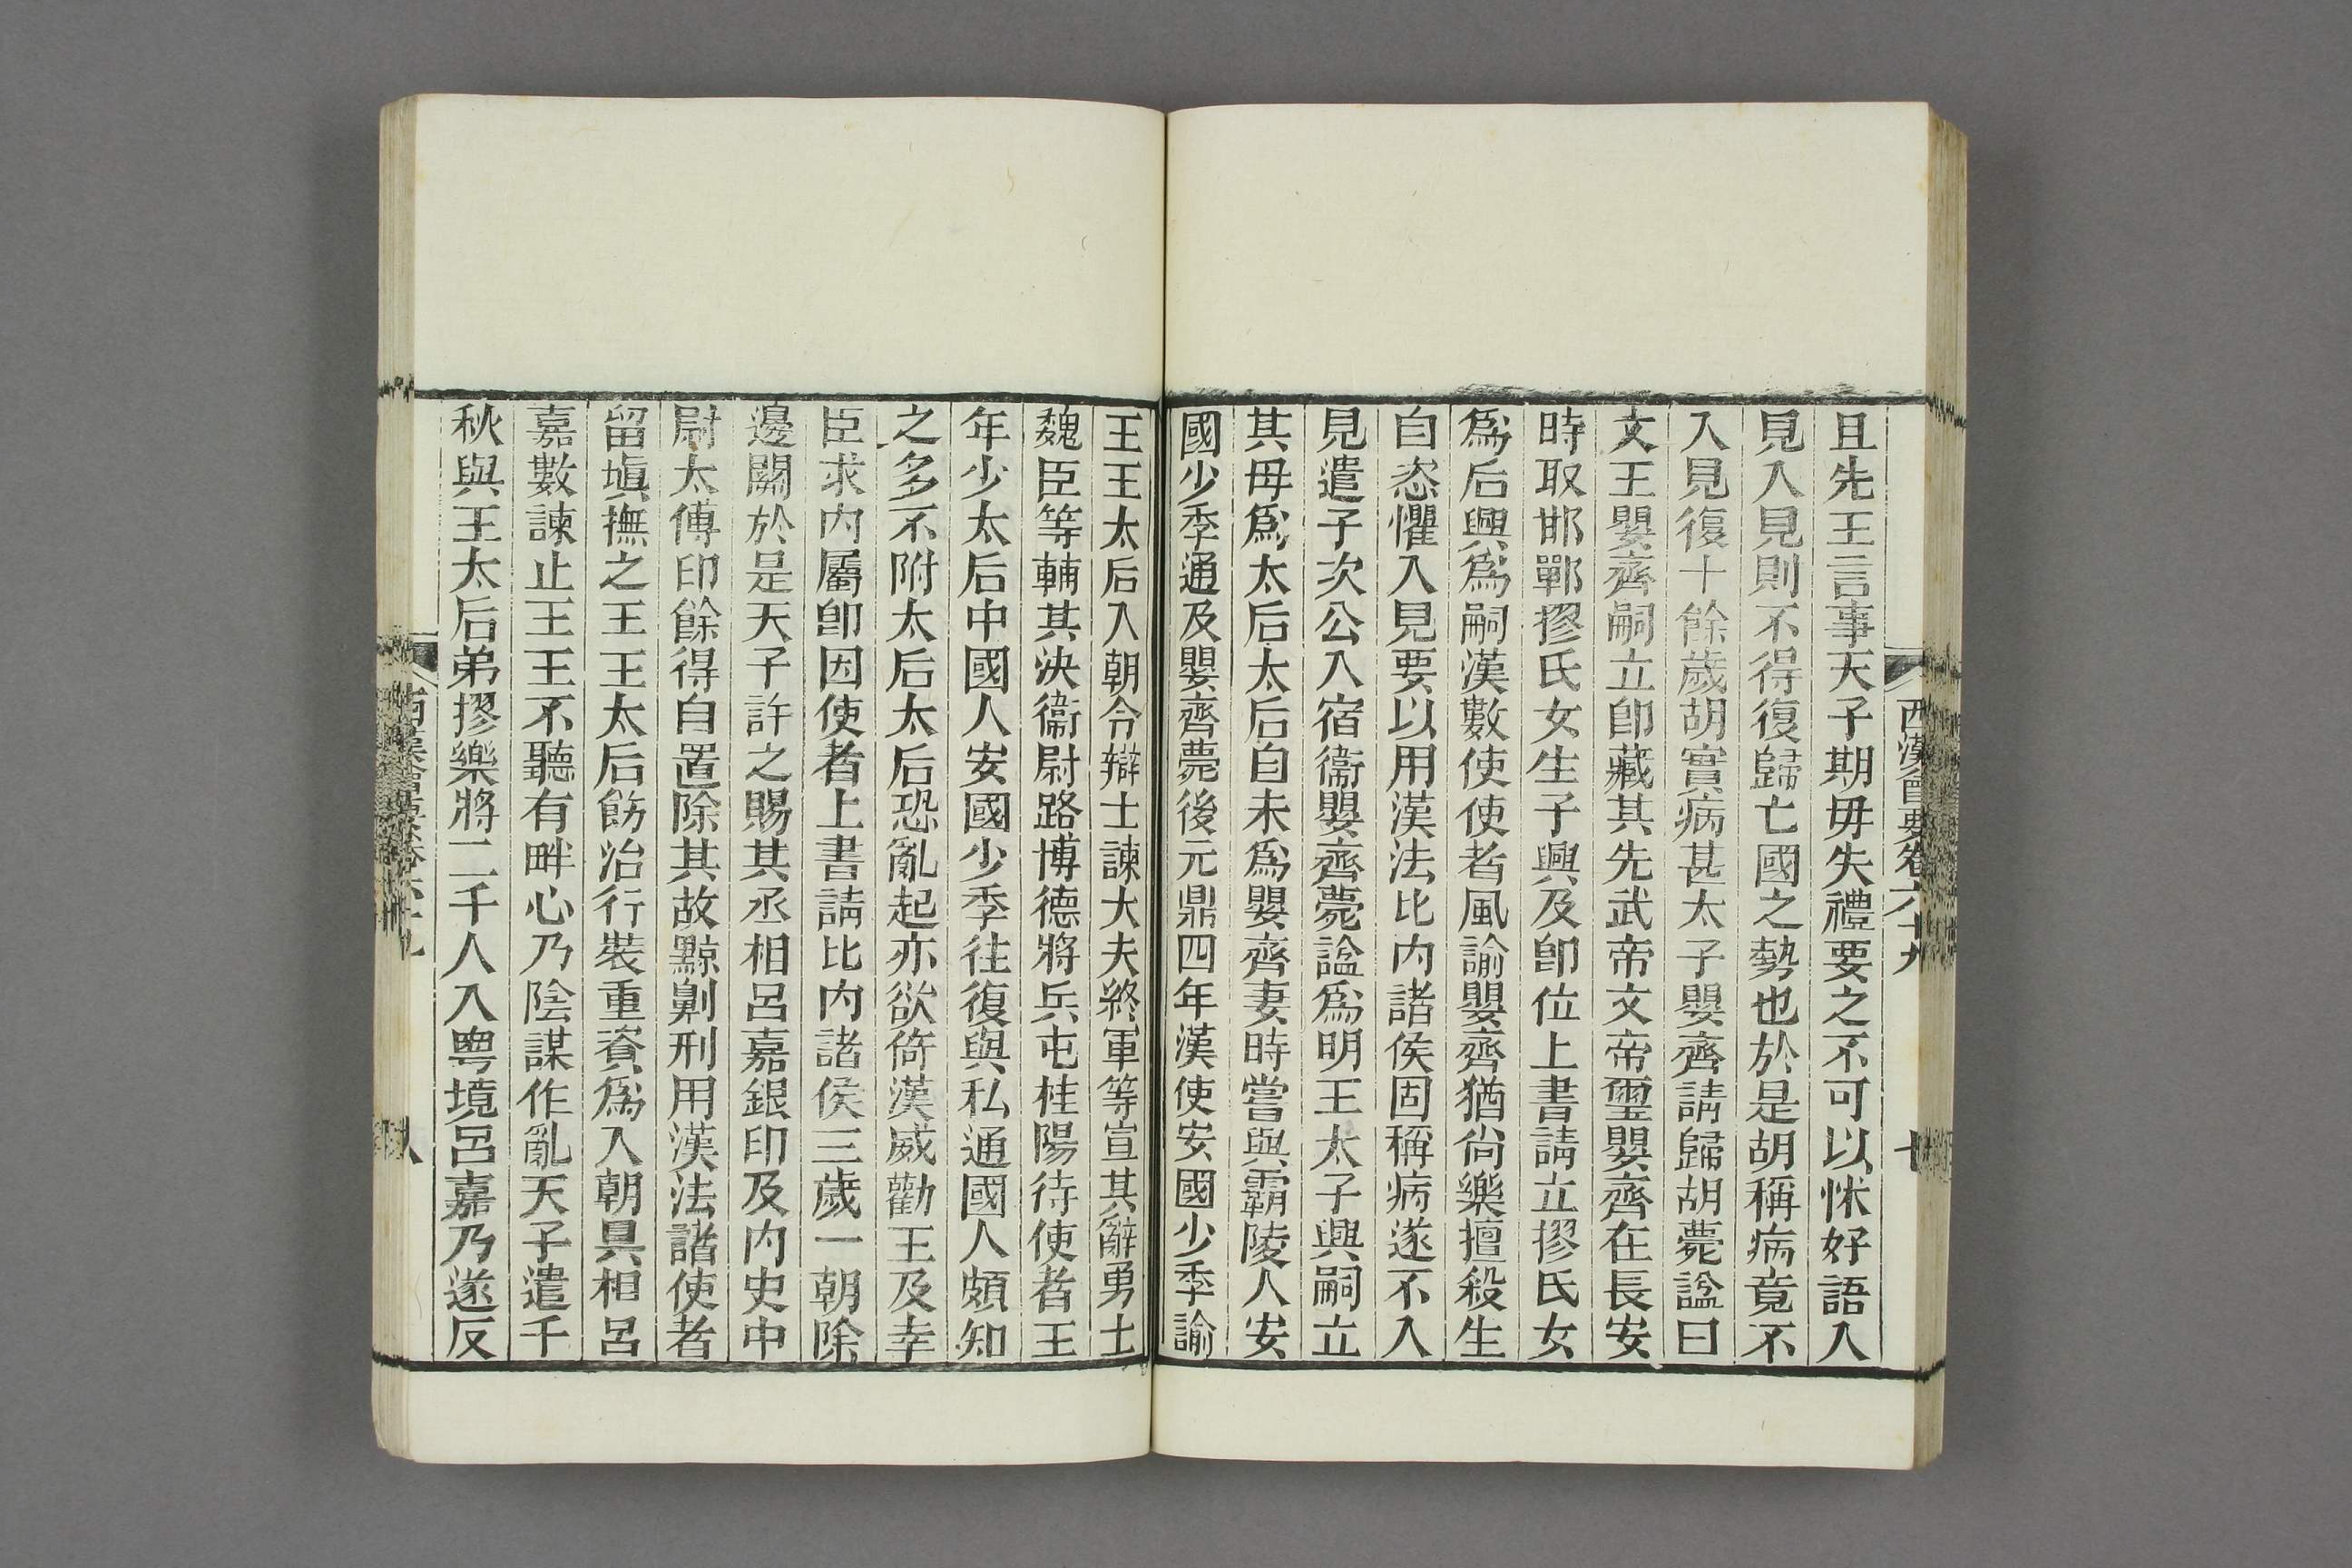 西漢會要卷六十九
且先王言事天子期毋失禮要之不可以怵好語入
見入見則不得復歸亡國之勢也於是胡稱病竟不
入見復十餘歲胡實病甚太子嬰齊請歸胡薨諡曰
文王嬰齊嗣立卽藏其先武帝文帝璽嬰齊在長安
時取邯鄲摎氏女生子興及卽位上書請立摎氏女
爲后興爲嗣漢數使使者風諭嬰齊猶尙樂擅殺生
自恣懼入見要以用漢法比內諸侯固稱病遂不入
見遣子次公入宿衞嬰齊薨諡爲明王太子興嗣立
其母爲太后太后自未爲嬰齊妻時嘗與霸陵人安
國少季通及嬰齊薨後元鼎四年漢使安國少季諭
王王太后入朝令辯士諫大夫終軍等宣其辭勇士
魏臣等輔其決衞尉路博德將兵屯桂陽待使者王
年少太后中國人安國少季往復與私通國人頗知
之多不附太后太后恐亂起亦欲倚漢威勸王及幸
臣求內屬卽因使者上書請比內諸侯三歲一朝除
邊關於是天子許之賜其丞相呂嘉銀印及內史中
尉太傅印餘得自置除其故黥劓刑用漢法諸使者
留塡撫之王王太后飭治行裝重資爲入朝具相呂
嘉數諫止王王不聽有畔心乃陰謀作亂天子遣千
秋與王太后弟摎樂將二千人入粵境呂嘉乃遂反